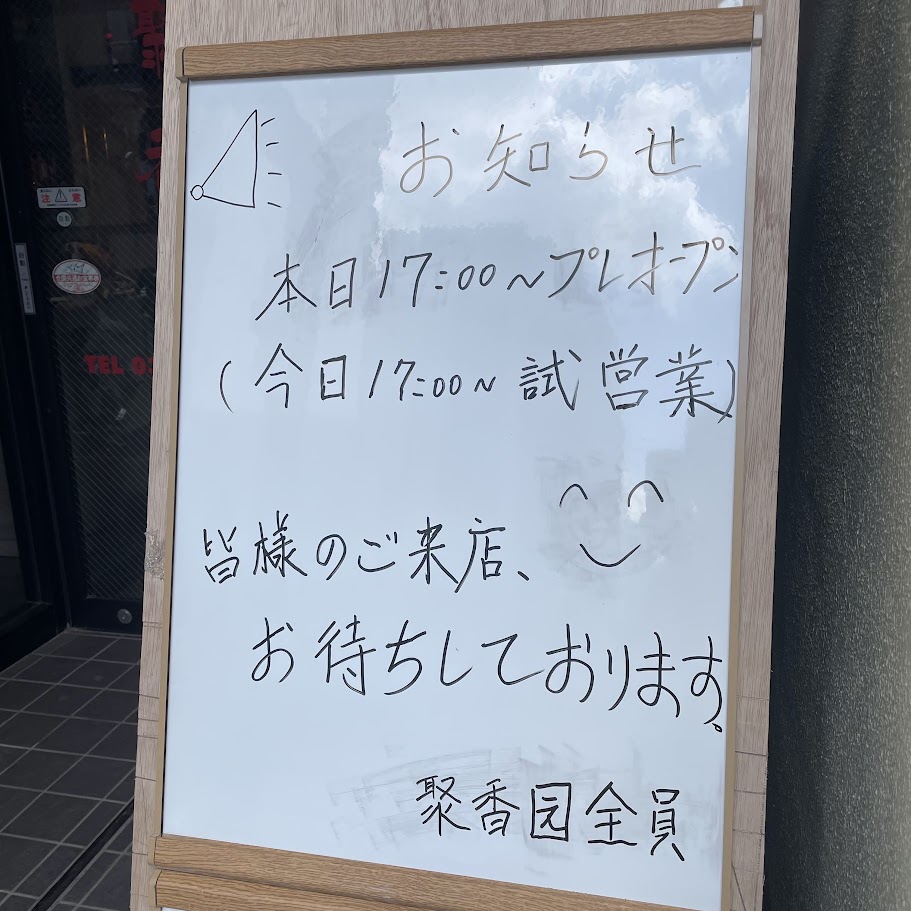 お知らせ
本日17:00~プレオープン
(今日17:00~試営業)
皆様のご来店、
お待ちしております。
聚香园全員
注意
TEL 03